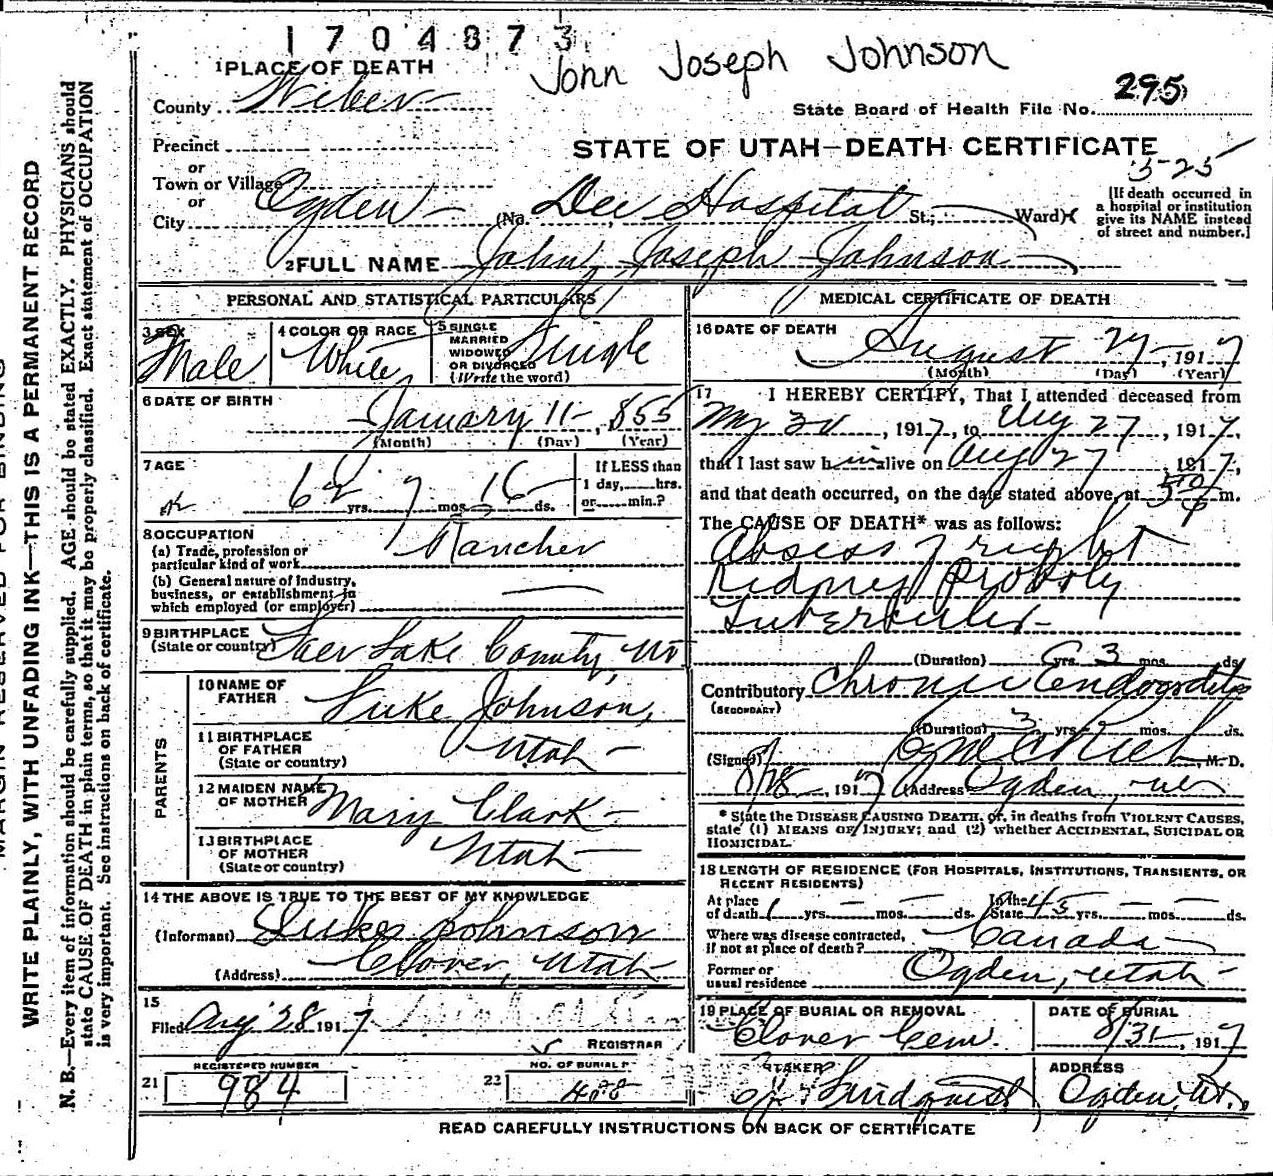 1704873
John Joseph Johnson
1 PLACE OF DEATH
County Weber
State Board of Health File No. 295
Precinct
STATE OF UTAH—DEATH CERTIFICATE
or
Town or Village
or
City Ogden (No. Dee Hospital St.; Ward)
[If death occurred in
a hospital or institution
give its NAME instead
of street and number.]
2 FULL NAME John Joseph Johnson
PERSONAL AND STATISTICAL PARTICULARS
3 SEX
Male
4 COLOR OR RACE
White
5 SINGLE
MARRIED
WIDOWED
OR DIVORCED
(Write the word)
Single
6 DATE OF BIRTH
January 11, 855
(Month) (Day) (Year)
7 AGE
62 yrs. 7 mos. 16 ds.
If LESS than
1 day, hrs.
or min.?
8 OCCUPATION
(a) Trade, profession or
particular kind of work Rancher
(b) General nature of industry,
business, or establishment in
which employed (or employer)
9 BIRTHPLACE
(State or country) Lake County, Ut
PARENTS
10 NAME OF
FATHER Luke Johnson,
11 BIRTHPLACE
OF FATHER
(State or country) Utah
12 MAIDEN NAME
OF MOTHER Mary Clark
13 BIRTHPLACE
OF MOTHER
(State or country) Utah
14 THE ABOVE IS TRUE TO THE BEST OF MY KNOWLEDGE
(Informant) Luke Johnson
(Address) Clover, Utah
15
Filed Aug 28 1917
REGISTRAR
REGISTERED NUMBER
21 984
NO. OF BURIAL P
22
MEDICAL CERTIFICATE OF DEATH
16 DATE OF DEATH
August 27, 1917
(Month) (Day) (Year)
17 I HEREBY CERTIFY, That I attended deceased from
1917, to Aug 27, 1917,
that I last saw him alive on Aug 27, 1917,
and that death occurred, on the date stated above, at m.
The CAUSE OF DEATH* was as follows:
Absess of right
Kidney Proboly
Tubercular
(Duration) yrs. 3 mos. ds.
Contributory Chronic
(SECONDARY)
(Duration) 3 yrs. mos. ds.
(Signed) M. D.
8/28, 1917 (Address) Ogden,
* State the DISEASE CAUSING DEATH, or, in deaths from VIOLENT CAUSES,
state (1) MEANS OF INJURY; and (2) whether ACCIDENTAL, SUICIDAL OR
HOMICIDAL.
18 LENGTH OF RESIDENCE (FOR HOSPITALS, INSTITUTIONS, TRANSIENTS, OR
RECENT RESIDENTS)
At place
of death yrs. mos. ds. In the
State 45 yrs. mos. ds.
Where was disease contracted,
if not at place of death? Canada
Former or
usual residence Ogden, Utah
19 PLACE OF BURIAL OR REMOVAL
Clover Cem.
DATE OF BURIAL
8/31, 1917
TAKER
Lindquist
ADDRESS
Ogden, Ut.
READ CAREFULLY INSTRUCTIONS ON BACK OF CERTIFICATE
MARGIN RESERVED FOR BINDING
WRITE PLAINLY, WITH UNFADING INK—THIS IS A PERMANENT RECORD
N. B.—Every item of information should be carefully supplied. AGE should be stated EXACTLY. PHYSICIANS should
state CAUSE OF DEATH in plain terms, so that it may be properly classified. Exact statement of OCCUPATION
is very important. See instructions on back of certificate.